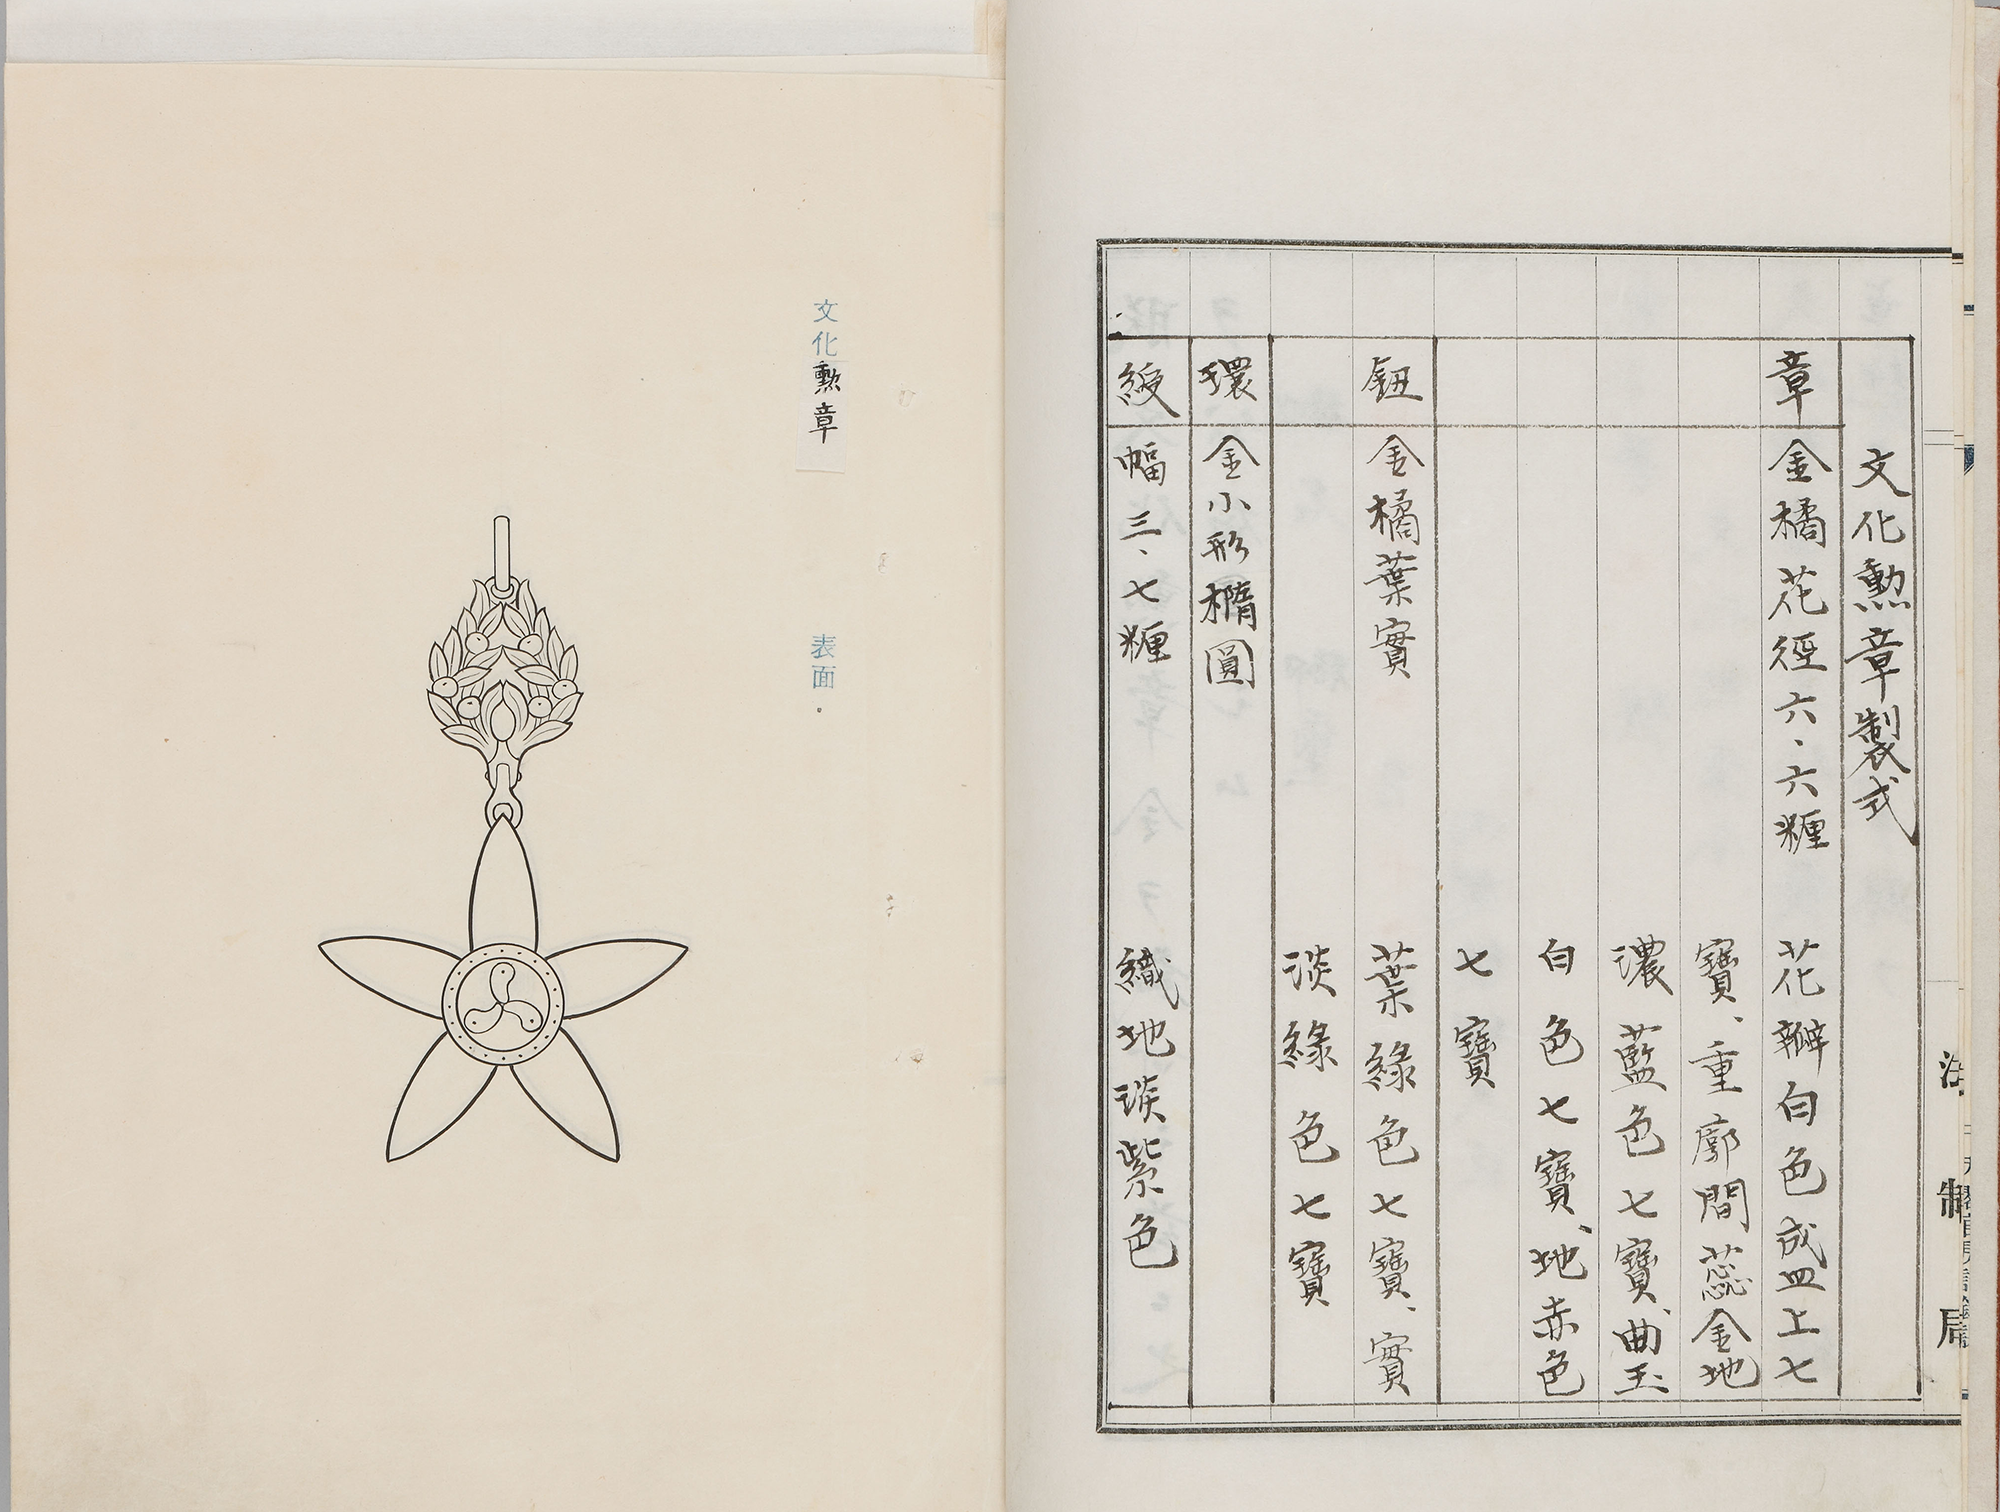 文化勲章製式
章
金橘花径六、六糎
花瓣白色成皿上七
寶、重廓間蕊金地
濃藍色七寶、曲玉
白色七寶、地赤色
七寶
鈕
金橘葉實
葉綠色七寶、實
淡綠色七寶
環
金小形橢圓
綬
幅三、七糎
織地淡紫色
法制局
文化勲章
表面